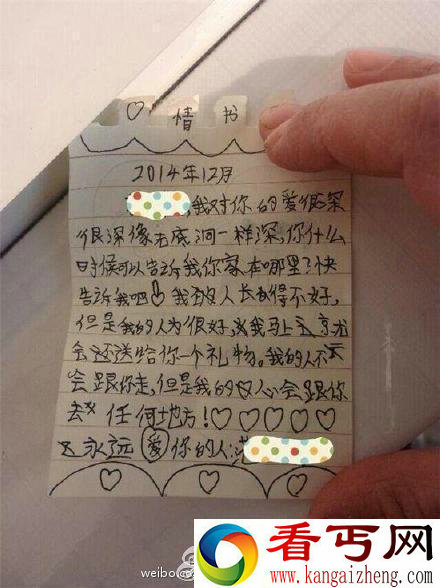 ♡情书
2014年12月
,我对你的爱很深
很深像无底洞一样深,你什么
时候可以告诉我你家在哪里?快
告诉我吧！我的人长得不好,
但是我的人为很好,我马上
会还送给你一个礼物。我的人不
会跟你走,但是我的心会跟你
去任何地方!♡♡♡♡♡
永远爱你的人:
weibo
看丐网
www.kangaizheng.com